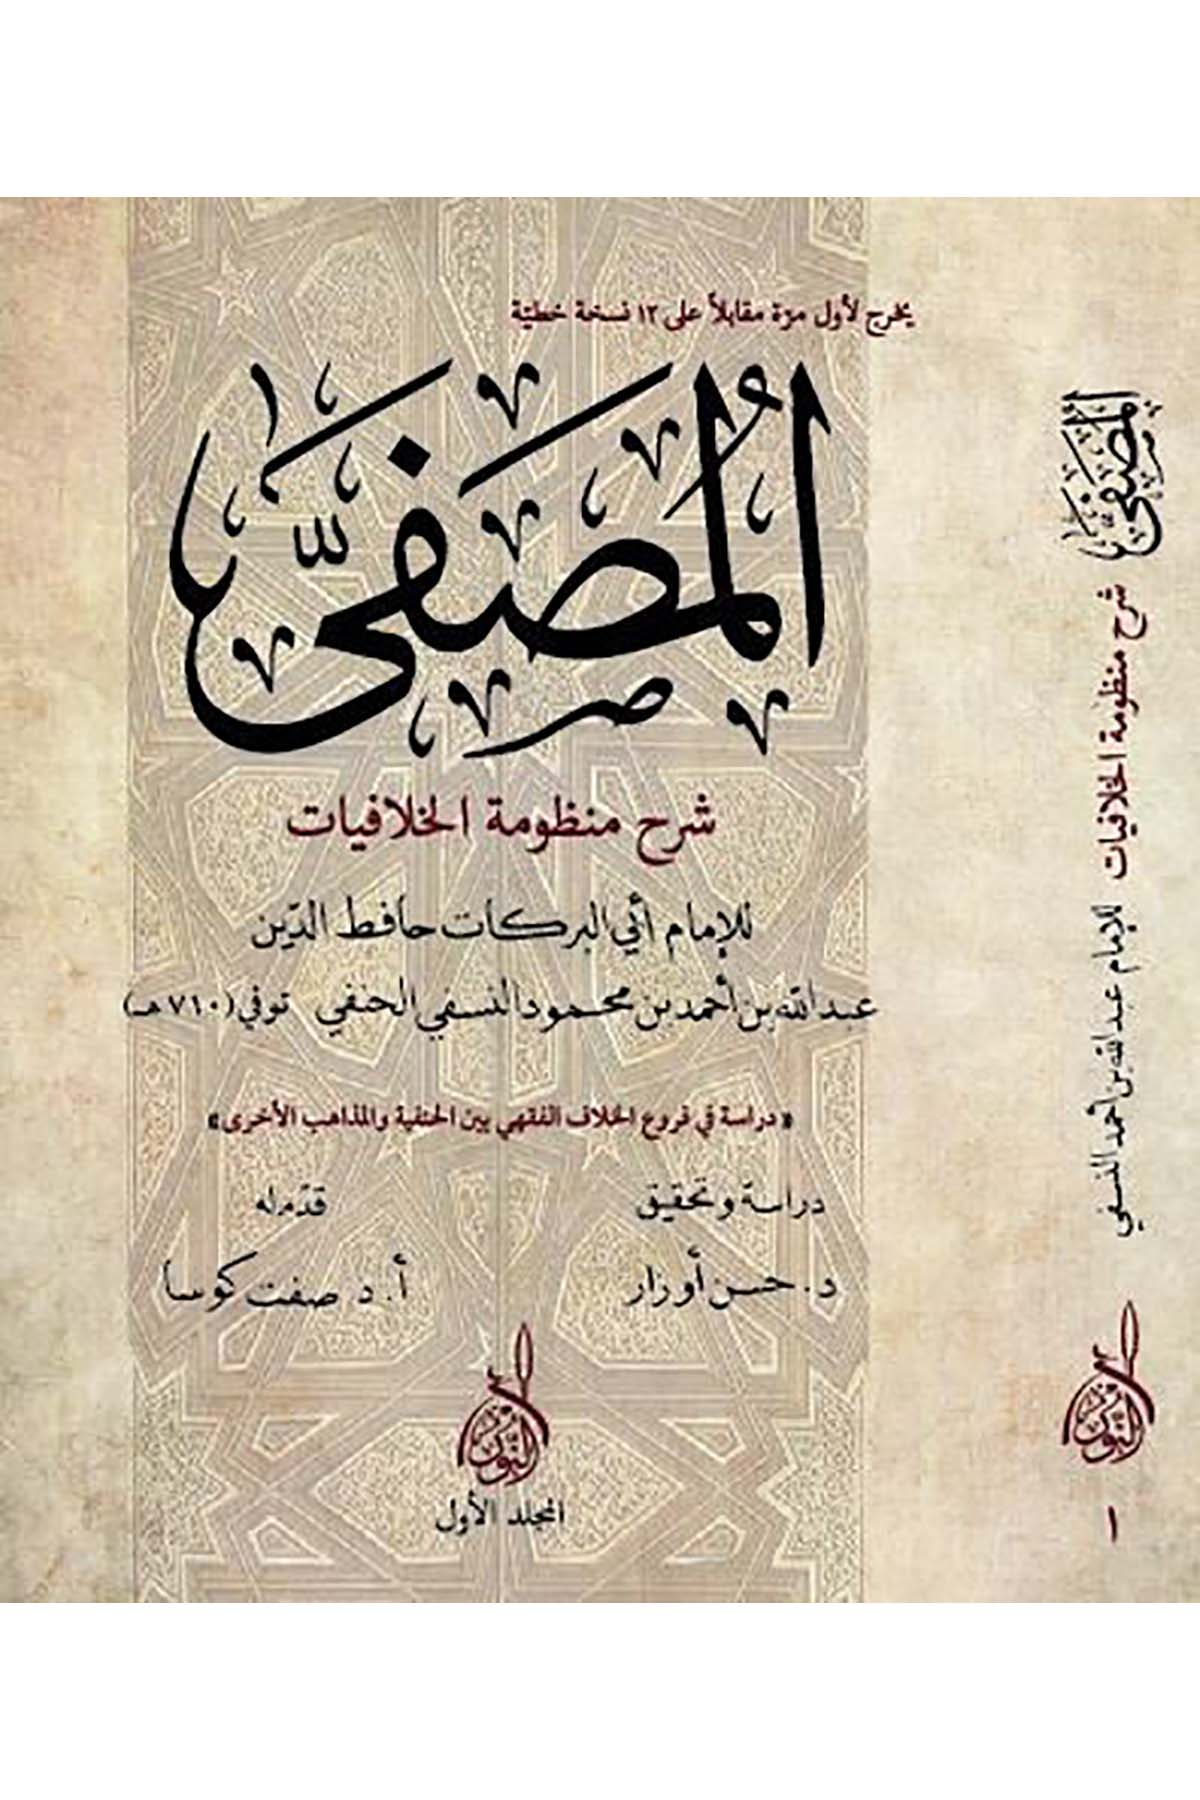 يخرج لأول مرّة مقابلاً على ١٢ نسخة خطيّة
المُصَفَّى
شرح منظومة الخلافيات
للإمام أبي البركات حافظ الدّين
عبدالله بن أحمد بن محمود النسفي الحنفي توفي (٧١٠هـ)
«دراسة في فروع الخلاف الفقهي بين الحنفية والمذاهب الأخرى»
دراسة وتحقيق
د. حسن أوزار
قدّم له
أ. د صفت كوسا
النّور
المجلد الأول
المُصَفَّى
شرح منظومة الخلافيات
للإمام عبدالله بن أحمد النسفي
النّور
١